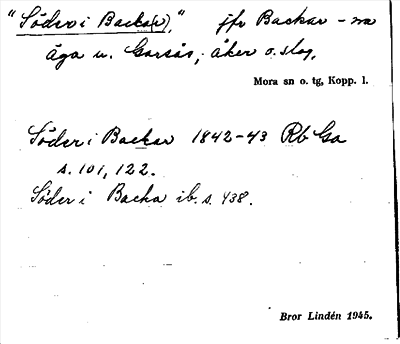 "Söder i Backa(r)," jfr Backar – na
äga u. Garsås, åker o. slog.
Mora sn o. tg, Kopp. l.
Söder i Backar 1842–43 Rb Ga
s. 101, 122.
Söder i Backa ib. s. 438.
Bror Lindén 1945.